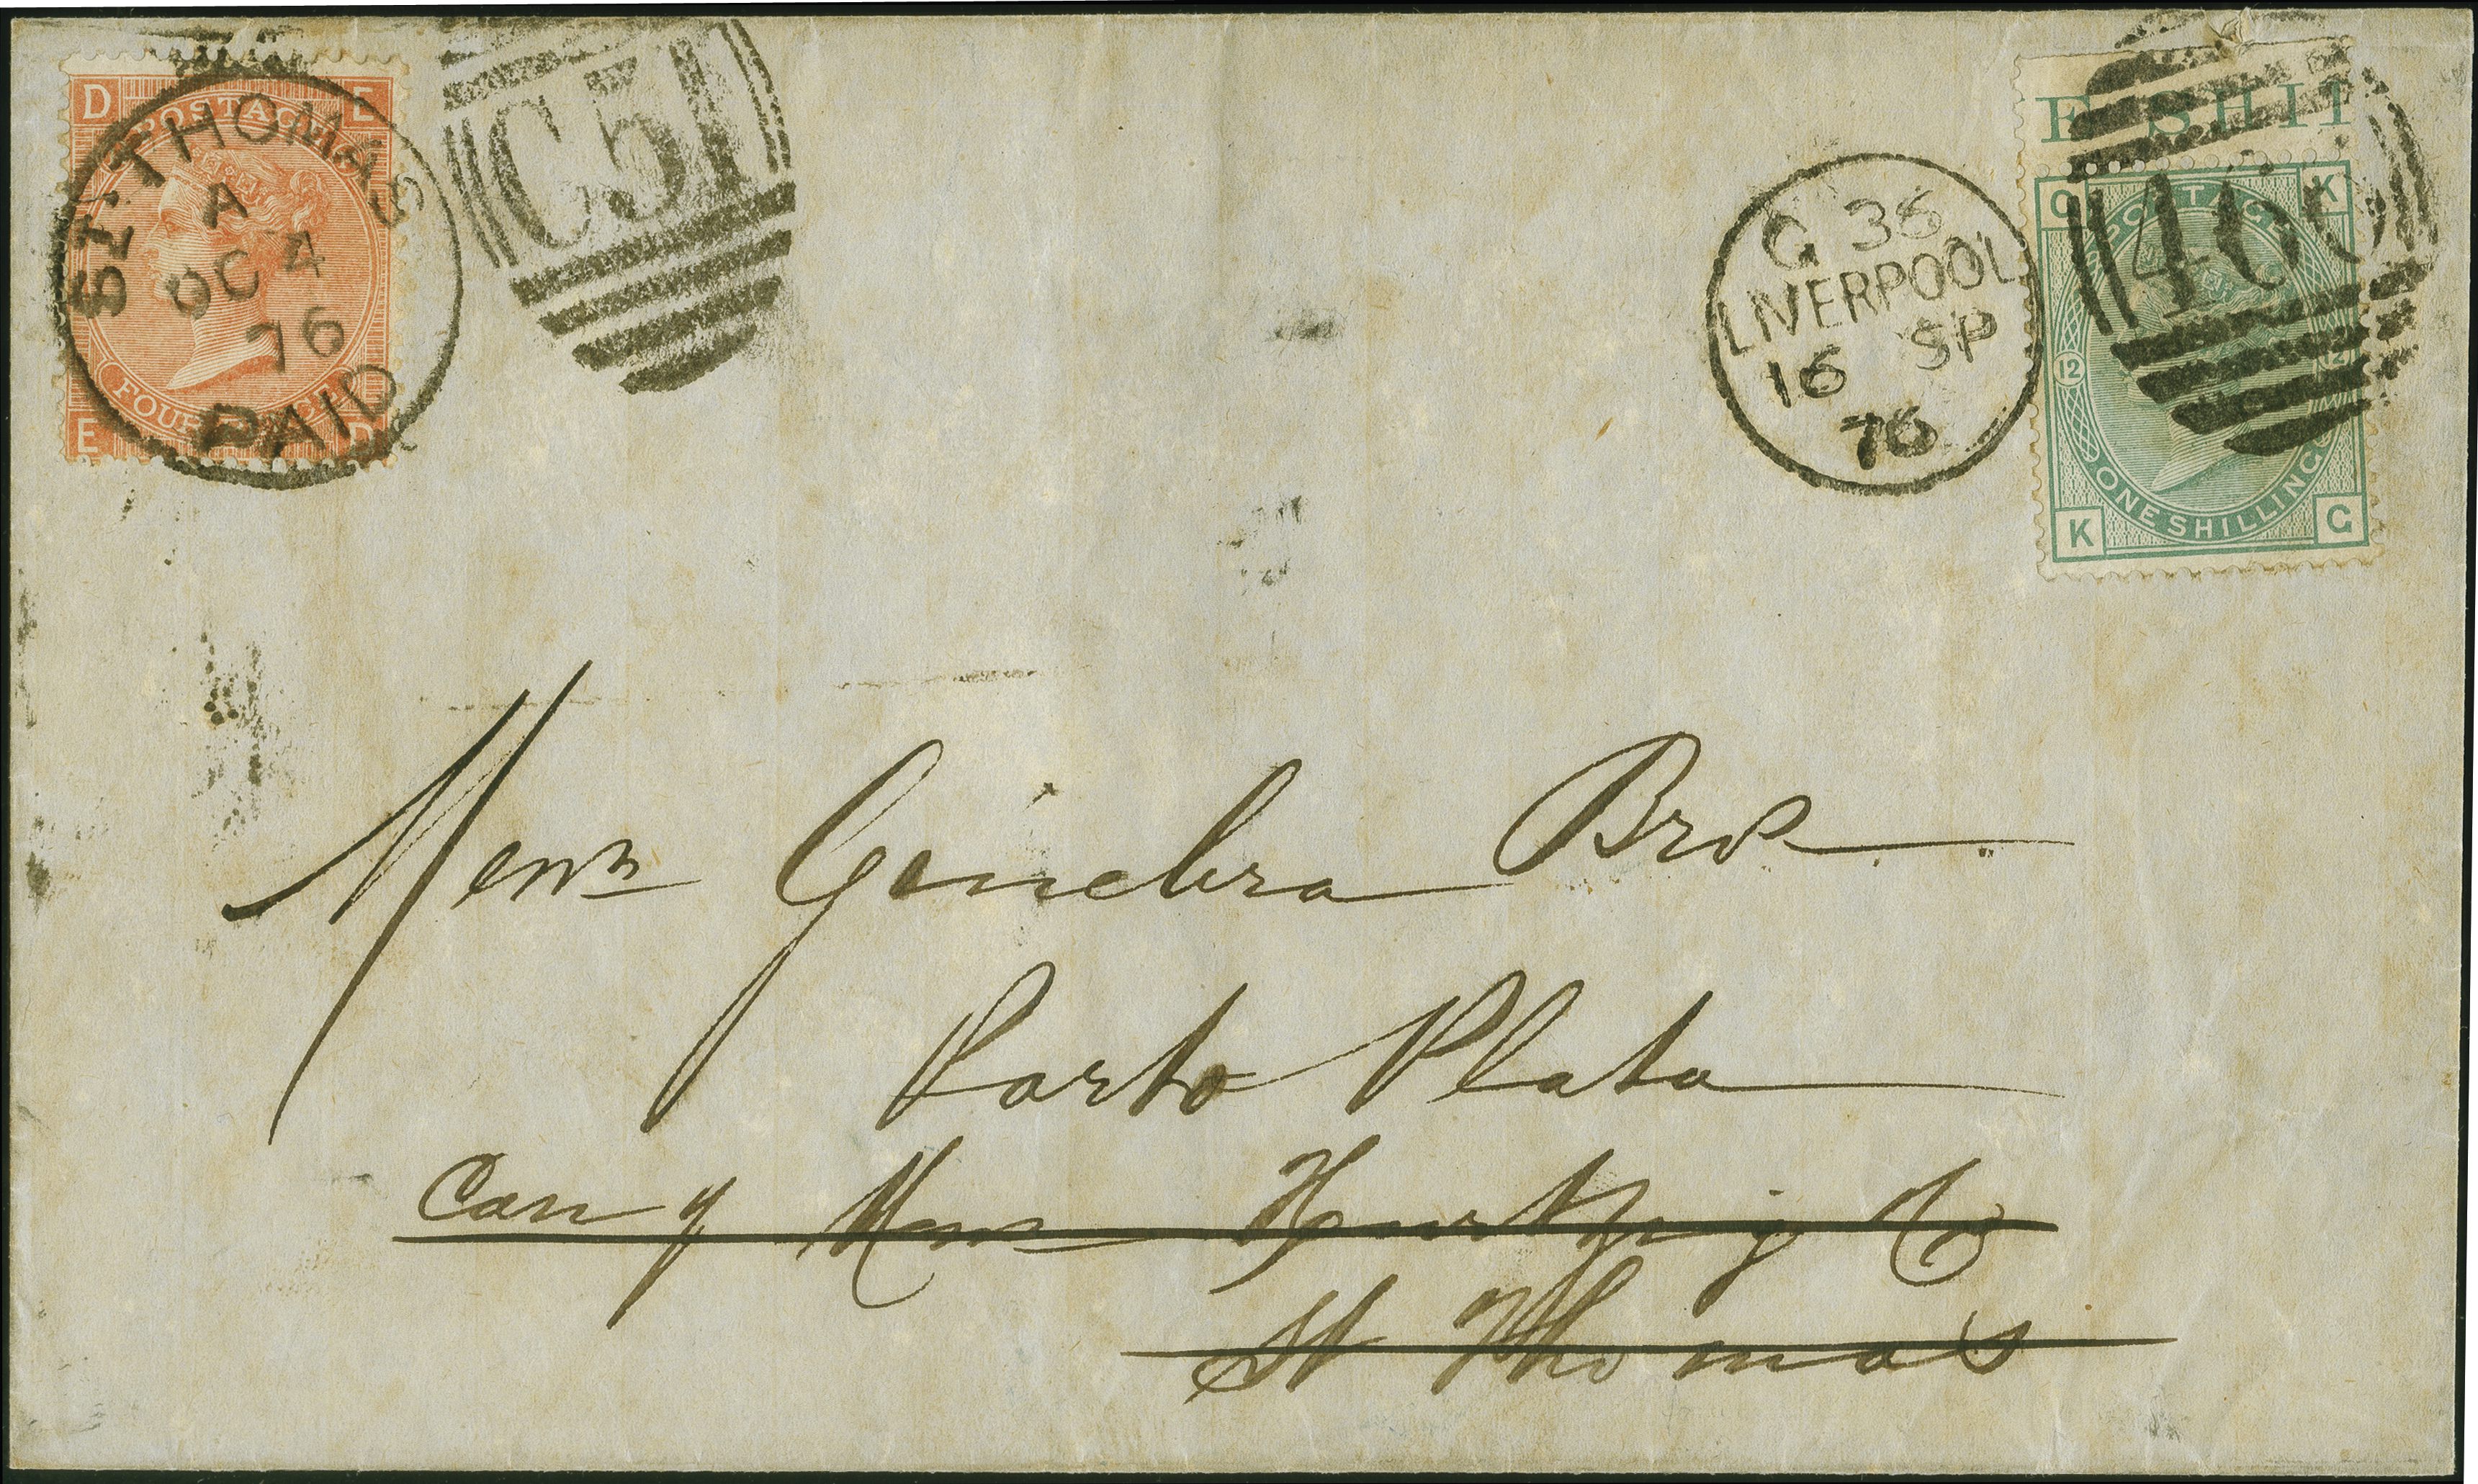 D E
POSTAGE
FOUR PENCE
E D
ST. THOMAS
A
OC 4
76
PAID
C51
G 36
LIVERPOOL
16 SP
76
E SHIL
G K
POSTAGE
466
12 12
ONE SHILLING
K G
Messrs Ginebra Bros
Porto Plata
Care of Messrs & Co
St Thomas